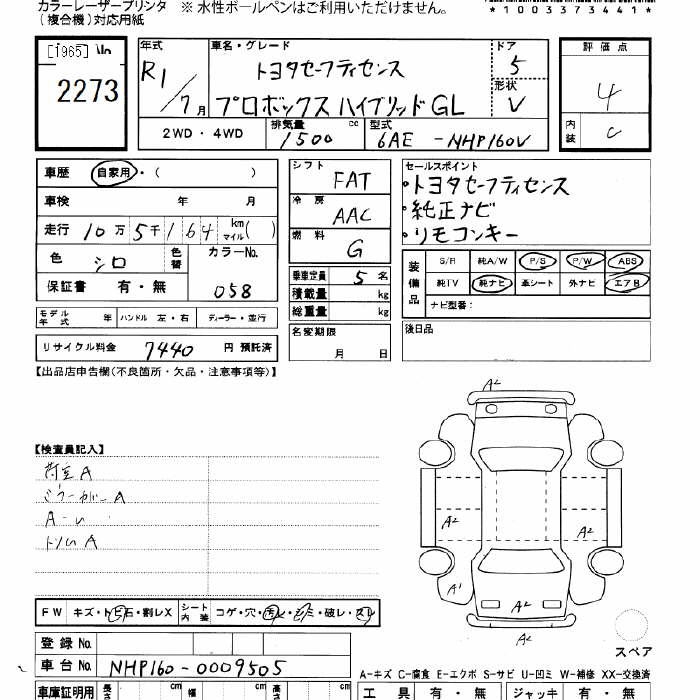 カラーレーザープリンタ ※ 水性ボールペンはご利用いただけません。
(複合機)対応用紙
*1003373441*
[1965] No
2273
年式 R1/7月
車名・グレード トヨタセーフティセンス
プロボックス ハイブリッド GL
ドア 5
形状 V
評価点 4
内装 C
2WD・4WD 排気量 1500 cc 型式 6AE -NHP160V
車歴 自家用・( )
車検 年 月
走行 10万 5千 164 km マイル ( )
色 シロ 色替 カラーNo. 058
保証書 有・無
モデル年式 年 ハンドル 左・右 ディーラー・並行
リサイクル料金 7440 円 預託済
シフト FAT
冷房 AAC
燃料 G
乗車定員 5 名
積載量 kg
総重量 kg
名変期限 月 日
セールスポイント
・トヨタセーフティセンス
・純正ナビ
・リモコンキー
装備品 S/R 純A/W P/S P/W ABS
純TV 純ナビ 革シート 外ナビ エアB
ナビ型番:
後日品
【出品店申告欄(不良箇所・欠品・注意事項等)】
【検査員記入】
荷室 A
ミラーカバー A
A-
A
A2
A2
A2
A1
A2
A2
スペア
FW キズ・トビ石・割レX シート内装 コゲ・穴・汚レ・シミ・破レ・スレ
登録 No.
車台 No. NHP160-0009505
A-キズ C-腐食 E-エクボ S-サビ U-凹ミ W-補修 XX-交換済
車庫証明用 長さ cm 幅 cm 高さ cm
工具 有・無 ジャッキ 有・無